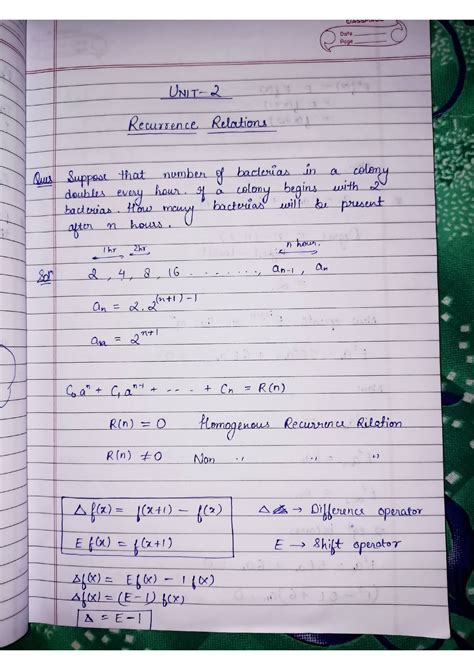 CLASSMATE
Date
Page
UNIT-2
Recurrence Relations
Ques Suppose that number of bacterias in a colony
doubles every hour. If a colony begins with 2
bacterias. How many bacterias will be present
after n hours.
1hr 2hr n hour.
Sol 2, 4, 8, 16 ......., aₙ₋₁, aₙ
aₙ = 2.2⁽ⁿ⁺¹⁾⁻¹
aₙ = 2ⁿ⁺¹
C₀aⁿ + C₁aⁿ⁻¹ + .... + Cₙ = R(n)
R(n) = 0 Homogenous Recurrence Rilation
R(n) ≠ 0 Non " " "
Δf(x) = f(x+1) - f(x) Δ → Difference operator
E f(x) = f(x+1) E → Shift operator
Δf(x) = Ef(x) - 1f(x)
Δf(x) = (E-1) f(x)
Δ = E-1